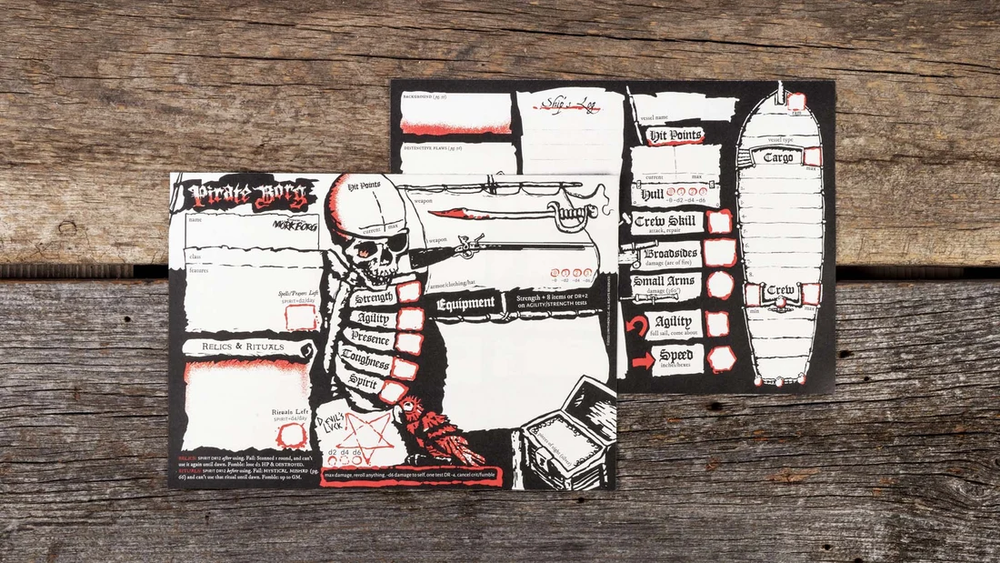 Pirate Borg
name
MÖRK BORG
class
features
Spells/Prayers Left
SPIRIT+d2/day
RELICS & RITUALS
Rituals Left
SPIRIT+d2/day
RELICS: SPIRIT DR12 after using. Fail: Stunned 1 round, and can't
use it again until dawn. Fumble: lose d2 HP & DESTROYED.
RITUALS: SPIRIT DR12 before using. Fail: MYSTICAL MISHAP (pg.
and can't use that ritual until dawn. Fumble: up to GM.
Hit Points
current
max
Strength
Agility
Presence
Toughness
Spirit
DEVIL'S
LUCK
d2 d4 d6
max damage, reroll anything, -d6 damage to self, one test DR -4, cancel crit/fumble
weapon
weapon
armor/clothing/hat
-0 -d2 -d4 -d6
Equipment
Strength + 8 items or DR+2
on AGILITY/STRENGTH tests
BACKGROUND
DISTINCTIVE FLAWS
Ship's Log
vessel name
Hit Points
current
max
Hull
-0 -d2 -d4 -d6
Crew Skill
attack, repair
Broadsides
damage (arc of fire)
Small Arms
damage (360°)
Agility
full sail, come about
Speed
inches/hexes
ram
vessel type
Cargo
max
Crew
min
max